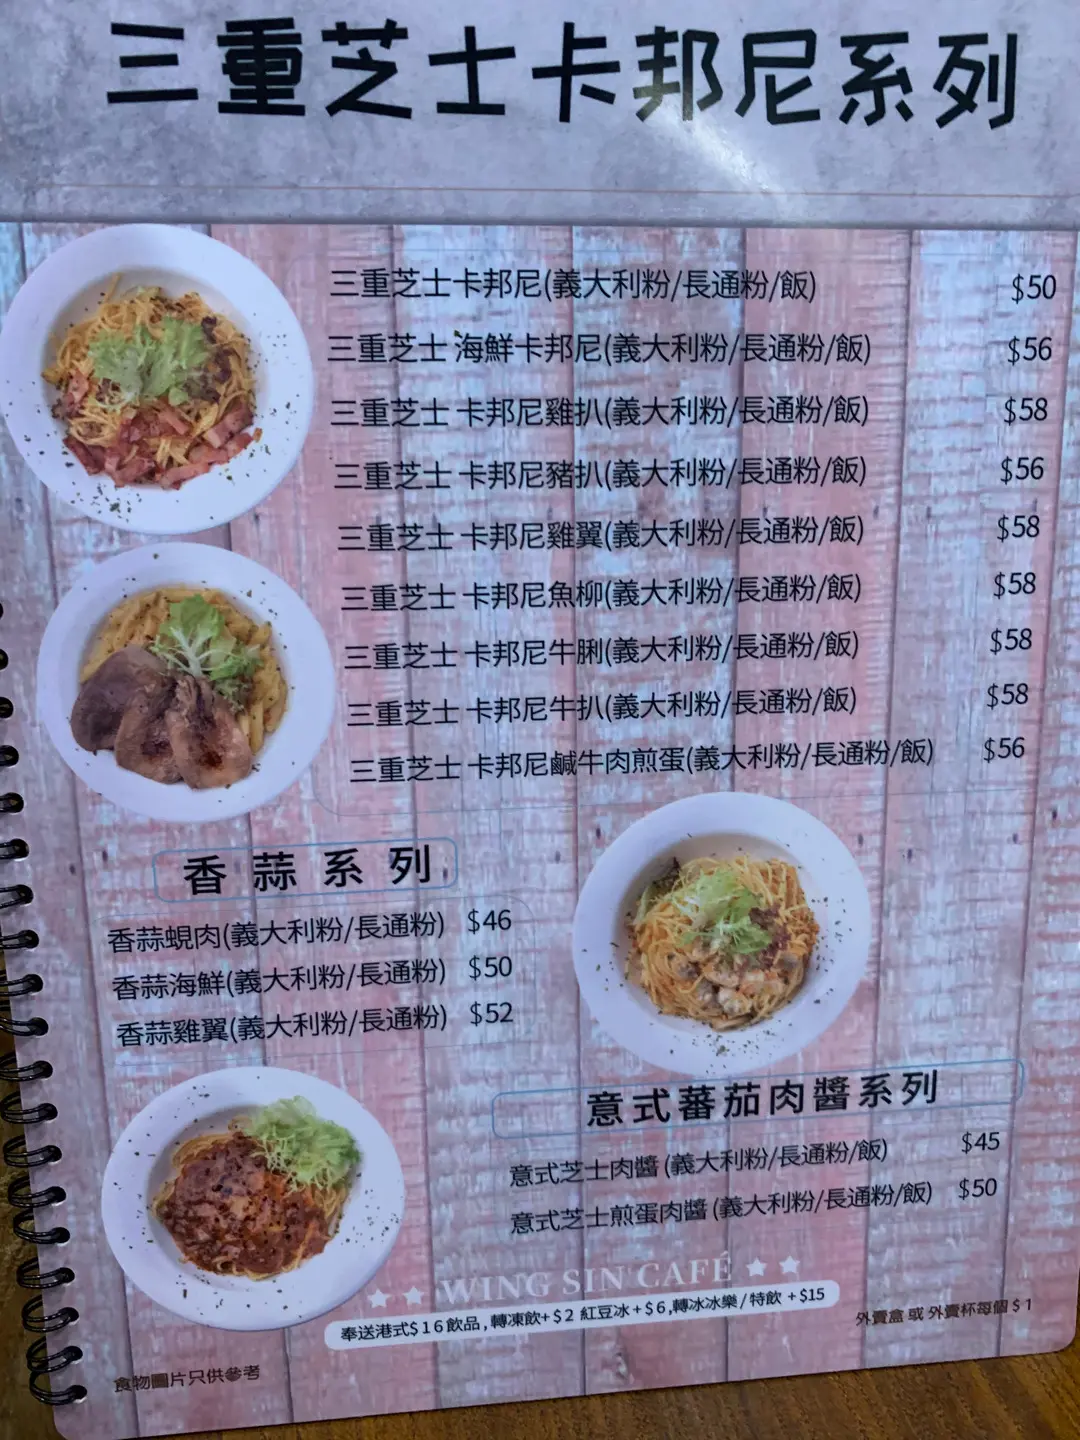 三重芝士卡邦尼系列
三重芝士卡邦尼(義大利粉/長通粉/飯) $50
三重芝士 海鮮卡邦尼(義大利粉/長通粉/飯) $56
三重芝士 卡邦尼雞扒(義大利粉/長通粉/飯) $58
三重芝士 卡邦尼豬扒(義大利粉/長通粉/飯) $56
三重芝士 卡邦尼雞翼(義大利粉/長通粉/飯) $58
三重芝士 卡邦尼魚柳(義大利粉/長通粉/飯) $58
三重芝士 卡邦尼牛脷(義大利粉/長通粉/飯) $58
三重芝士 卡邦尼牛扒(義大利粉/長通粉/飯) $58
三重芝士 卡邦尼鹹牛肉煎蛋(義大利粉/長通粉/飯) $56
香蒜系列
香蒜蜆肉(義大利粉/長通粉) $46
香蒜海鮮(義大利粉/長通粉) $50
香蒜雞翼(義大利粉/長通粉) $52
意式蕃茄肉醬系列
意式芝士肉醬 (義大利粉/長通粉/飯) $45
意式芝士煎蛋肉醬 (義大利粉/長通粉/飯) $50
WING SIN CAFÉ
奉送港式$16飲品,轉凍飲+$2 紅豆冰+$6,轉冰冰樂/特飲 +$15
外賣盒 或 外賣杯每個 $1
食物圖片只供參考